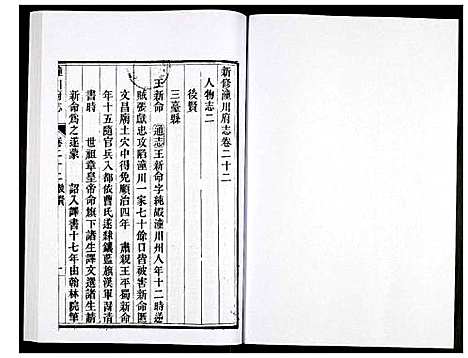 新修潼川府志卷二十二
人物志二
後賢
三臺縣
王新命 通志王新命字純嘏潼川州人年十二時逆
賊張獻忠攻陷潼川一家七十餘口皆被害新命匿
文昌廟土穴中得免順治四年 肅親王平蜀新命
年十五隨官兵入都依曹氏遂隸鑲藍旗漢軍習清
書時 世祖章皇帝命旗下諸生譯文選諸生請
新命為之遂蒙 詔入譯書十七年由翰林院筆
潼川府志 卷二十二